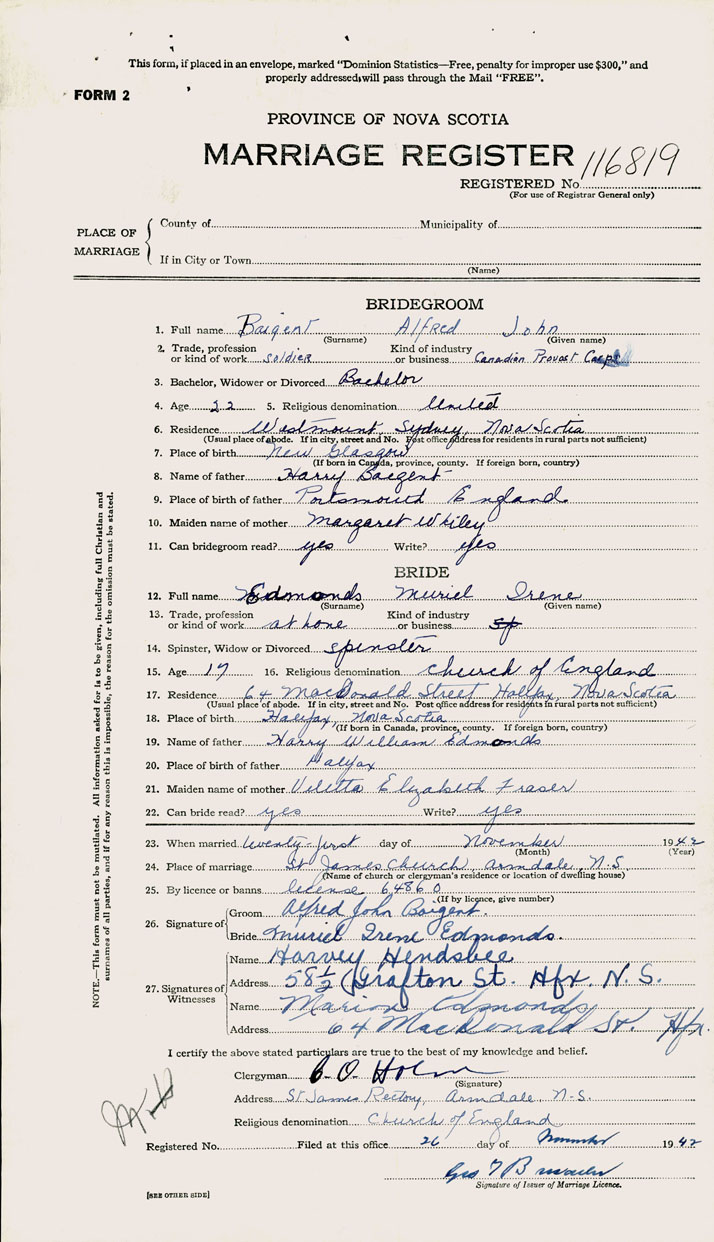 This form, if placed in an envelope, marked "Dominion Statistics—Free, penalty for improper use $300," and
properly addressed, will pass through the Mail "FREE".
FORM 2
PROVINCE OF NOVA SCOTIA
MARRIAGE REGISTER 116819
REGISTERED No.
(For use of Registrar General only)
PLACE OF MARRIAGE
County of Municipality of
If in City or Town
(Name)
BRIDEGROOM
1. Full name Baigent Alfred John
(Surname) (Given name)
2. Trade, profession or kind of work soldier Kind of industry or business Canadian Provost Corps
3. Bachelor, Widower or Divorced Bachelor
4. Age 22 5. Religious denomination United
6. Residence Westmount, Sydney, Nova Scotia
(Usual place of abode. If in city, street and No. Post office address for residents in rural parts not sufficient)
7. Place of birth New Glasgow
(If born in Canada, province, county. If foreign born, country)
8. Name of father Harry Baigent
9. Place of birth of father Portsmouth England
10. Maiden name of mother Margaret Whiley
11. Can bridegroom read? yes Write? yes
BRIDE
12. Full name Edmonds Muriel Irene
(Surname) (Given name)
13. Trade, profession or kind of work at home Kind of industry or business sp
14. Spinster, Widow or Divorced spinster
15. Age 19 16. Religious denomination Church of England
17. Residence 64 MacDonald Street Halifax, Nova Scotia
(Usual place of abode. If in city, street and No. Post office address for residents in rural parts not sufficient)
18. Place of birth Halifax, Nova Scotia
(If born in Canada, province, county. If foreign born, country)
19. Name of father Harry William Edmonds
20. Place of birth of father Halifax
21. Maiden name of mother Viletta Elizabeth Fraser
22. Can bride read? yes Write? yes
23. When married twenty-first day of November 1942
(Month) (Year)
24. Place of marriage St James Church, Armdale, N.S.
(Name of church or clergyman's residence or location of dwelling house)
25. By licence or banns license 64860
(If by licence, give number)
26. Signature of
Groom Alfred John Baigent.
Bride Muriel Irene Edmonds.
27. Signatures of Witnesses
Name Harvey Hendsbee
Address 58½ Grafton St. Hfx. N.S.
Name Marion Edmonds
Address 64 MacDonald St. Hfx.
I certify the above stated particulars are true to the best of my knowledge and belief.
Clergyman
(Signature)
Address St James Rectory, Armdale, N.S.
Religious denomination Church of England
Registered No. Filed at this office 26 day of November 1942
Signature of Issuer of Marriage Licence.
[SEE OTHER SIDE]
NOTE.—This form must not be mutilated. All information asked for is to be given, including full Christian and
surnames of all parties, and if for any reason this is impossible, the reason for the omission must be stated.